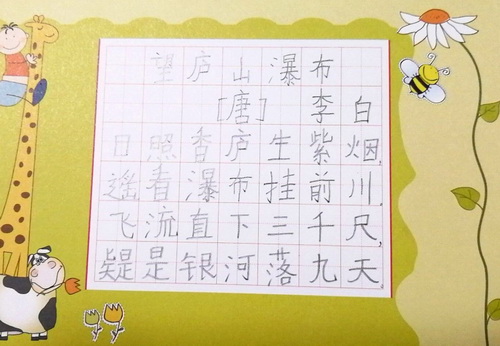 望庐山瀑布
[唐] 李白
日照香庐生紫烟,
遥看瀑布挂前川,
飞流直下三千尺,
疑是银河落九天.